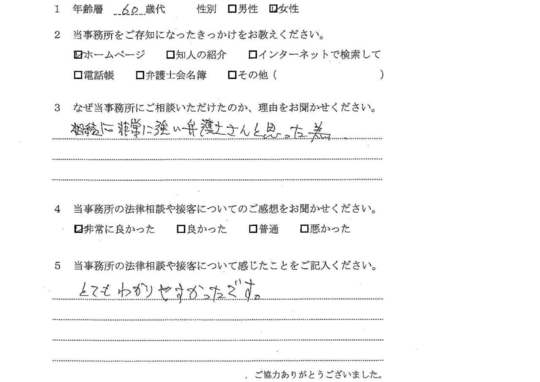 1 年齢層 60 歳代 性別 □男性 ☑女性
2 当事務所をご存知になったきっかけをお教えください。
☑ホームページ □知人の紹介 □インターネットで検索して
□電話帳 □弁護士会名簿 □その他( )
3 なぜ当事務所にご相談いただけたのか、理由をお聞かせください。
相続に非常に強い弁護士さんと思った為
4 当事務所の法律相談や接客についてのご感想をお聞かせください。
☑非常に良かった □良かった □普通 □悪かった
5 当事務所の法律相談や接客について感じたことをご記入ください。
とてもわかりやすかったです。
ご協力ありがとうございました。